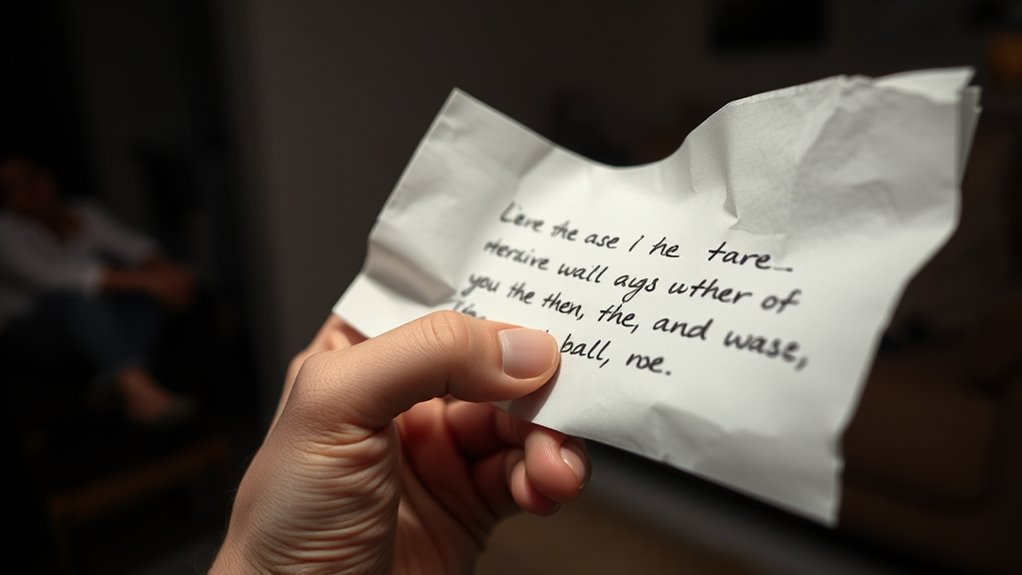 Liere the ase I he tare
Hersive wall ays uther of
you the then, the, and wase,
ball, roe.